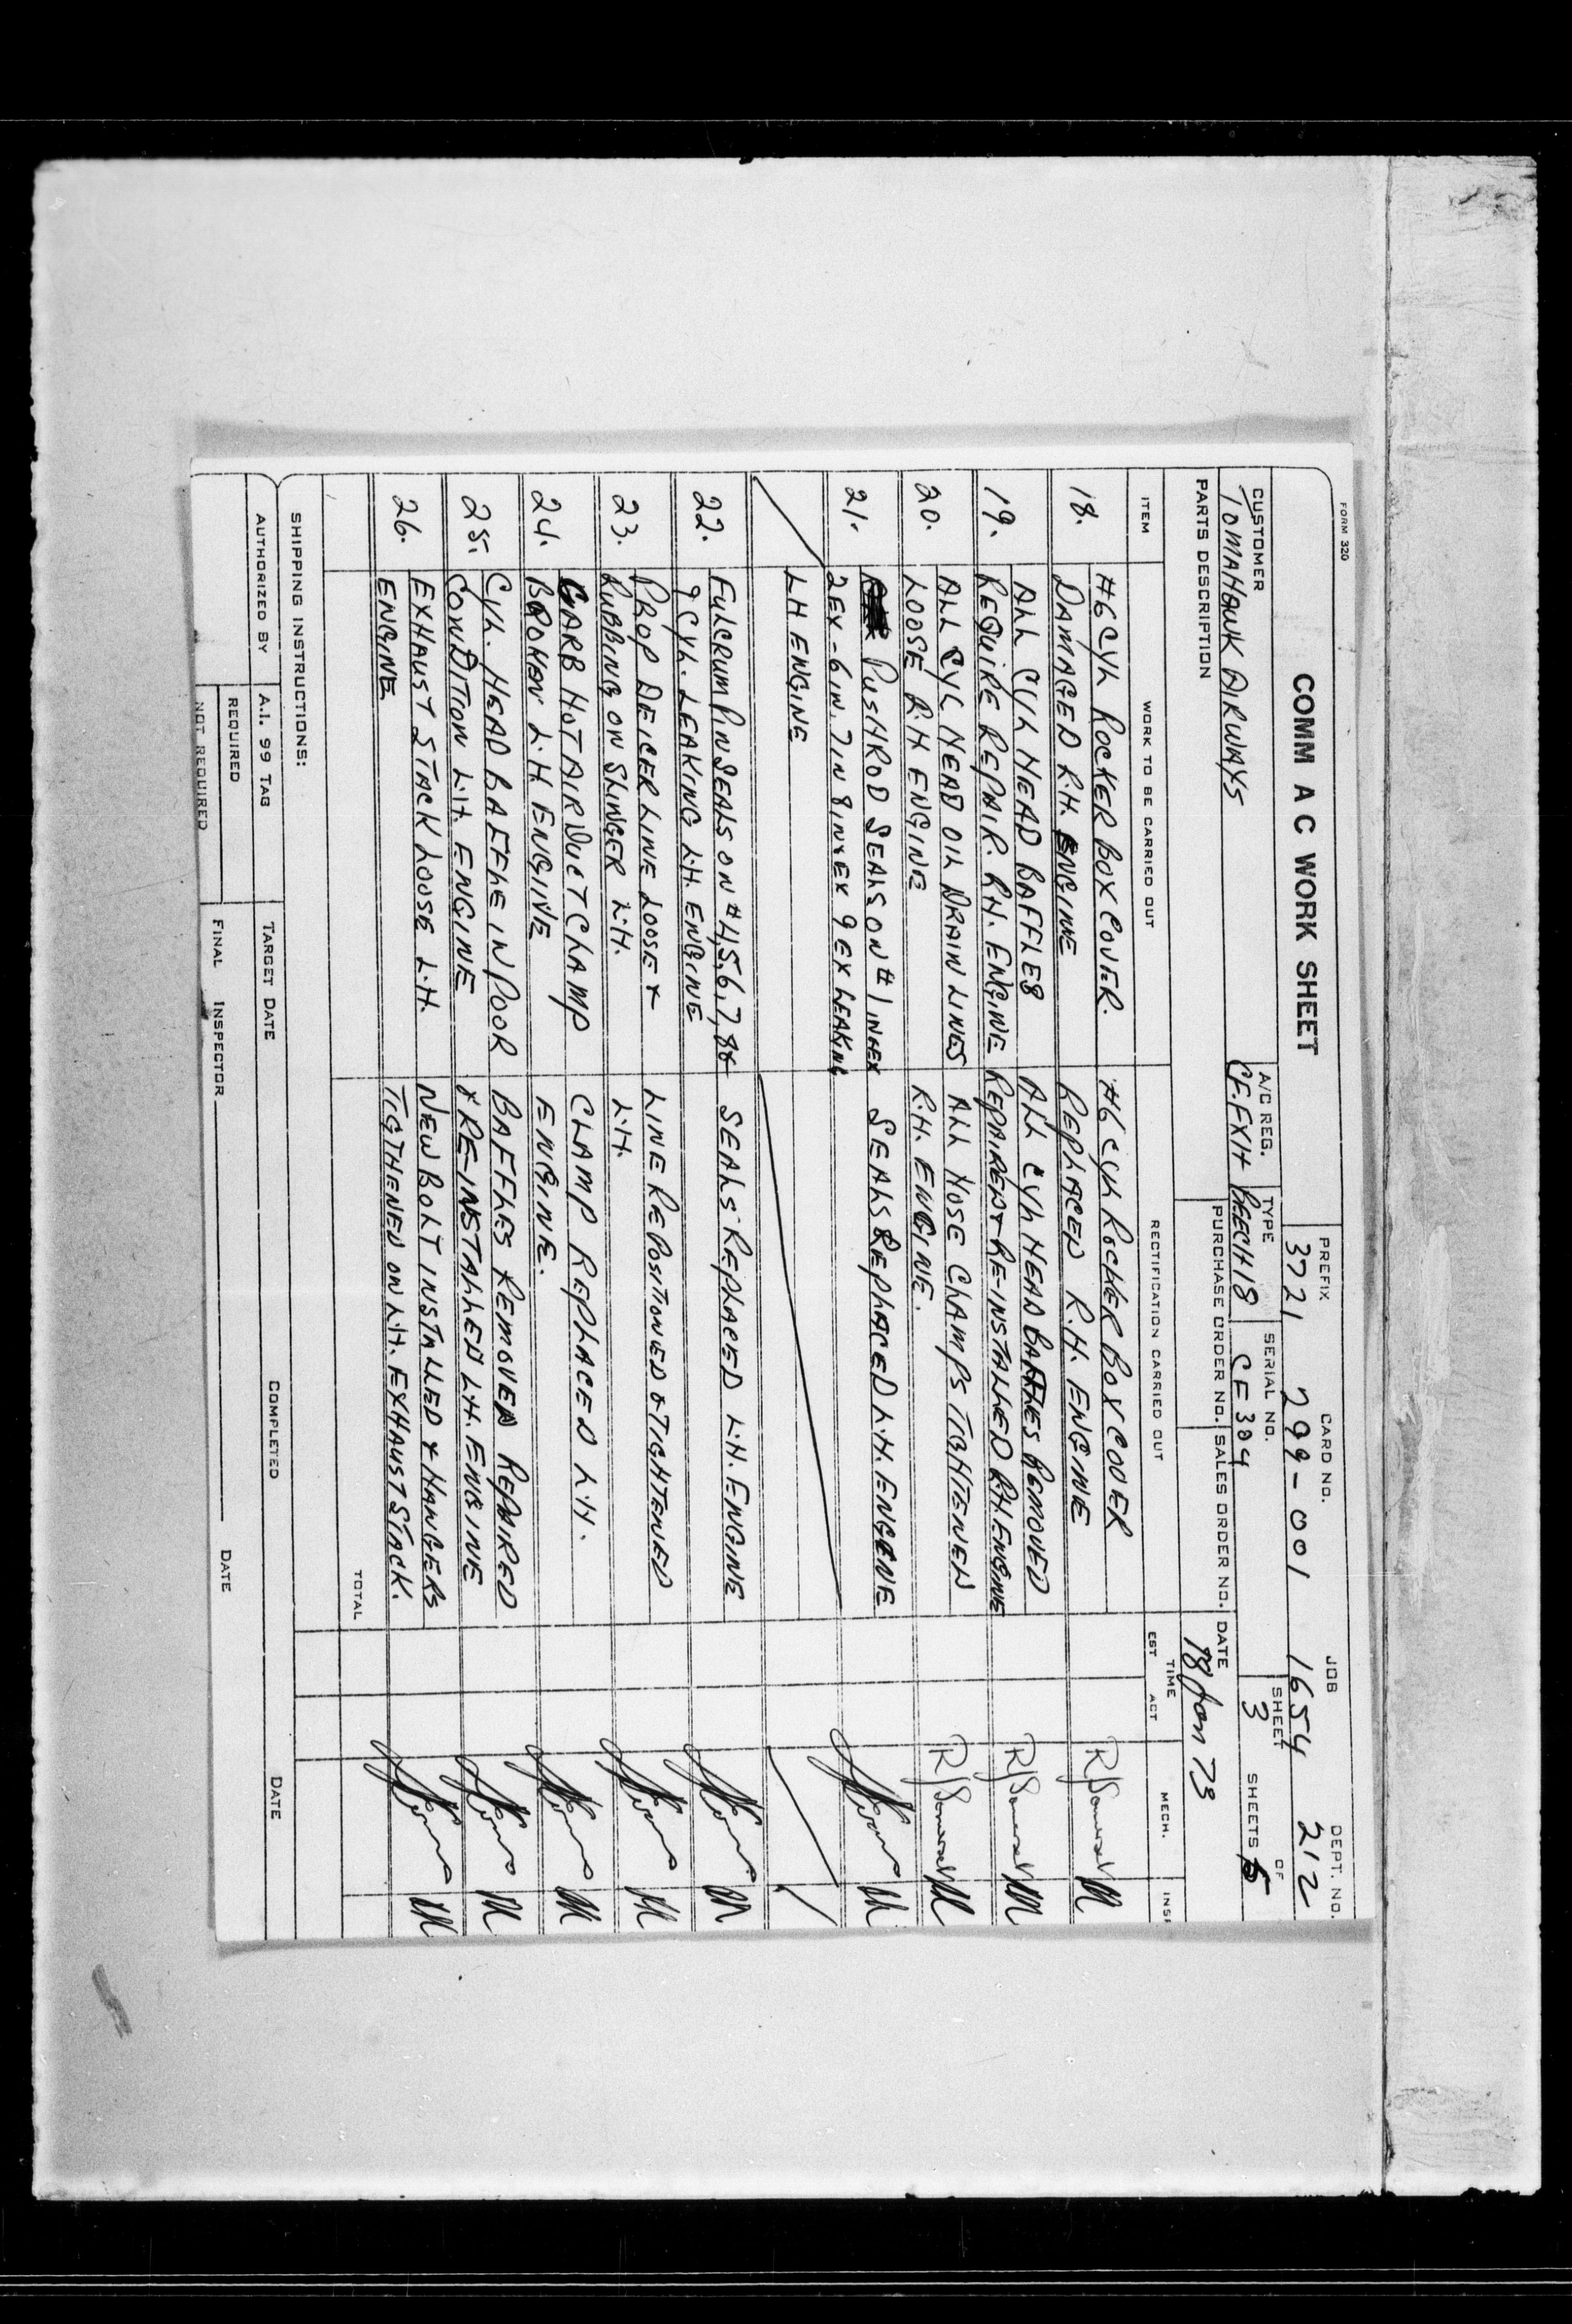 FORM 320
COMM A C WORK SHEET
PREFIX CARD NO. JOB DEPT. NO.
3721 299-001 1654 212
CUSTOMER A/C REG. TYPE SERIAL NO. SHEET SHEETS OF
TOMAHAWK AIRWAYS CF.EXH BEECH 18 CE 304 3 5
PARTS DESCRIPTION PURCHASE ORDER NO. SALES ORDER NO. DATE
18 Jan 73
ITEM WORK TO BE CARRIED OUT RECTIFICATION CARRIED OUT TIME MECH. INSP
EST ACT
18. #6 CYL ROCKER BOX COVER. #6 CYL ROCKER BOX COVER
DAMAGED R.H. ENGINE REPLACED R.H. ENGINE
19. ALL CYL HEAD BAFFLES ALL CYL HEAD BAFFLES REMOVED
REQUIRE REPAIR. RH. ENGINE REPAIRED & RE-INSTALLED RH ENGINE
20. ALL CYL HEAD OIL DRAIN LINES ALL HOSE CLAMPS TIGHTENED
LOOSE R.H ENGINE R.H. ENGINE.
21. PUSHROD SEALS ON #1 IN&EX SEALS REPLACED L.H. ENGINE
2EX - 6IN. 7IN 8IN&EX 9EX LEAKING
LH ENGINE
22. FULCRUM PIN SEALS ON #4,5,6,7,8& SEALS REPLACED L.H. ENGINE
9 CYL. LEAKING L.H. ENGINE
23. PROP DEICER LINE LOOSE & LINE REPOSITIONED & TIGHTENED
RUBBING ON SLINGER L.H. L.H.
24. CARB HOT AIR DUCT CLAMP CLAMP REPLACED L.H.
BROKEN L.H. ENGINE ENGINE.
25. CYL. HEAD BAFFLE IN POOR BAFFLES REMOVED REPAIRED
CONDITION L.H. ENGINE & RE-INSTALLED L.H. ENGINE
26. EXHAUST STACK LOOSE L.H. NEW BOLT INSTALLED & HANGERS
ENGINE TIGTHENED ON L.H. EXHAUST STACK.
TOTAL
SHIPPING INSTRUCTIONS:
AUTHORIZED BY A.I. 99 TAG TARGET DATE COMPLETED DATE
REQUIRED
NOT REQUIRED FINAL INSPECTOR DATE